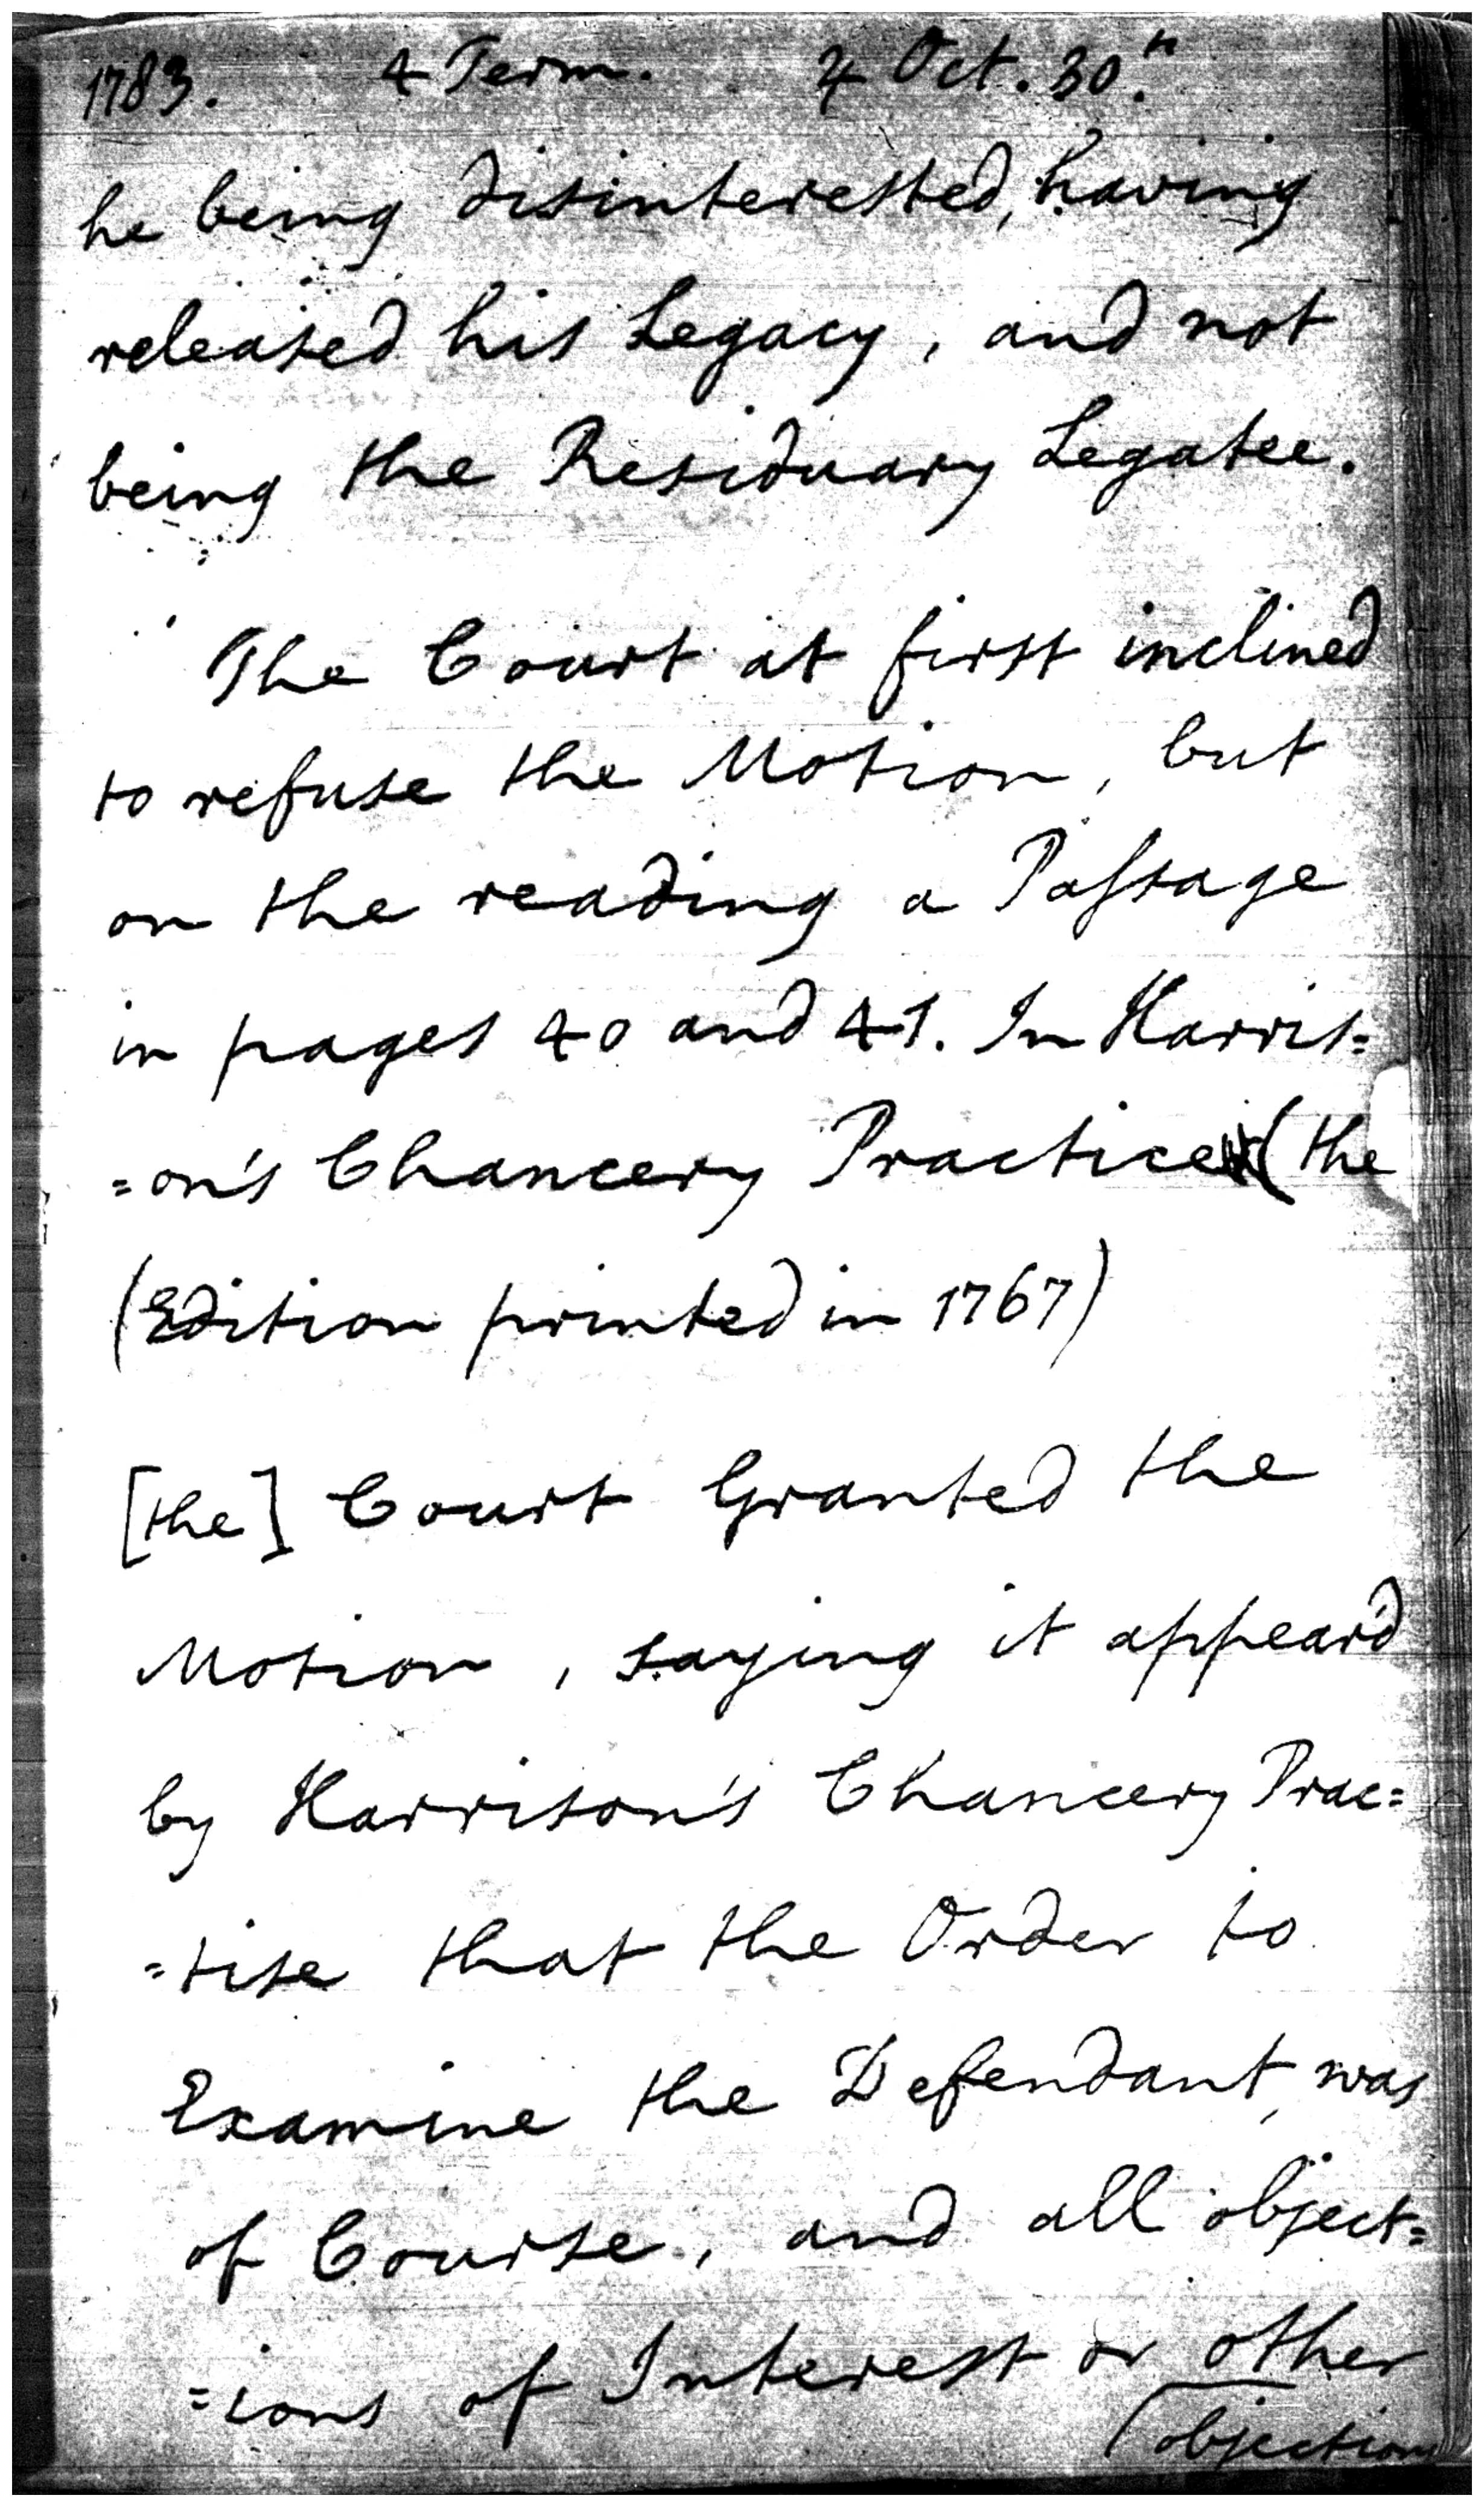 1783. 4 Term. 4 Oct. 30.th
he being disinterested, having
released his Legacy, and not
being the Residuary Legatee.
The Court at first inclined
to refuse the Motion, but
on the reading a Passage
in pages 40 and 41. In Harris=
=on's Chancery Practice (the
(Edition printed in 1767)
[the] Court Granted the
Motion, saying it appear'd
by Harrison's Chancery Prac=
=tise that the Order to
Examine the Defendant, was
of Course, and all object=
=ions of Interest or other
(objections